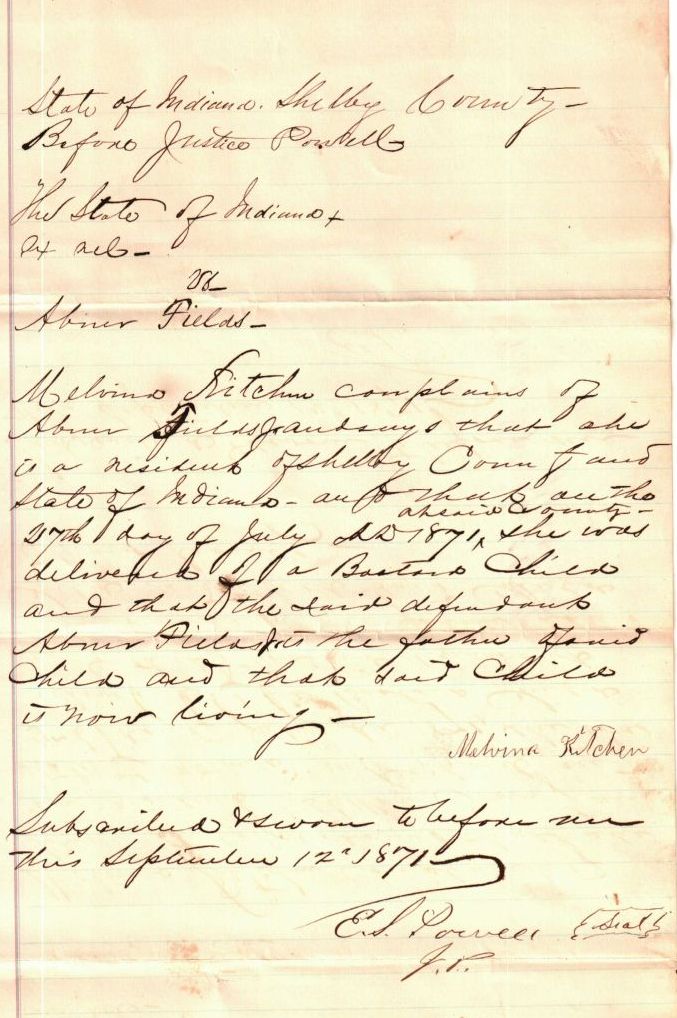 State of Indiana. Shelby County –
Before Justice Powell
The State of Indiana
ex rel –
vs –
Abner Fields –
Melvina Kitchen complains of
Abner Fields and says that she
is a resident of Shelby County and
State of Indiana – and that on the
at said County –
27th day of July AD 1871, she was
delivered of a Bastard Child
and that the said defendant
Abner Fields is the father of said
Child and that said Child
is now living –
Melvina Kitchen
Subscribed & sworn to before me
this September 12" 1871
E. S. Powell (Seal)
J. P.